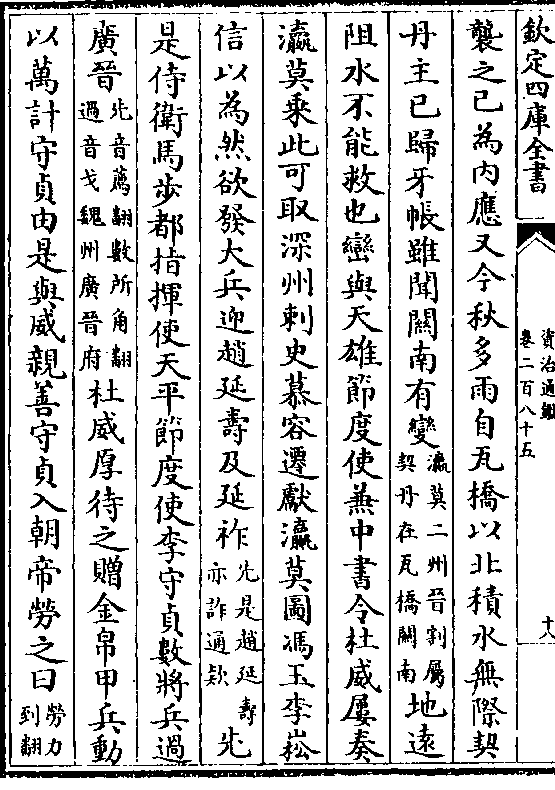 欽定四庫全書
資治通鑑
卷二百八十五
十八
襲之已為内應又今秋多雨自瓦橋以北積水無際契
丹主已歸牙帳雖聞關南有變瀛莫二州晉割屬契丹在瓦橋關南地遠
阻水不能救也巒與天雄節度使兼中書令杜威屢奏
瀛莫乘此可取深州刺史慕容遷獻瀛莫圖馮玉李崧
信以為然欲發大兵迎趙延壽及延祚先是趙延壽亦詐通欵先
是侍衛馬步都指揮使天平節度使李守貞數將兵過
廣晉先音薦翻數所角翻過音戈魏州廣晉府杜威厚待之贈金帛甲兵動
以萬計守貞由是與威親善守貞入朝帝勞之曰勞力到翻